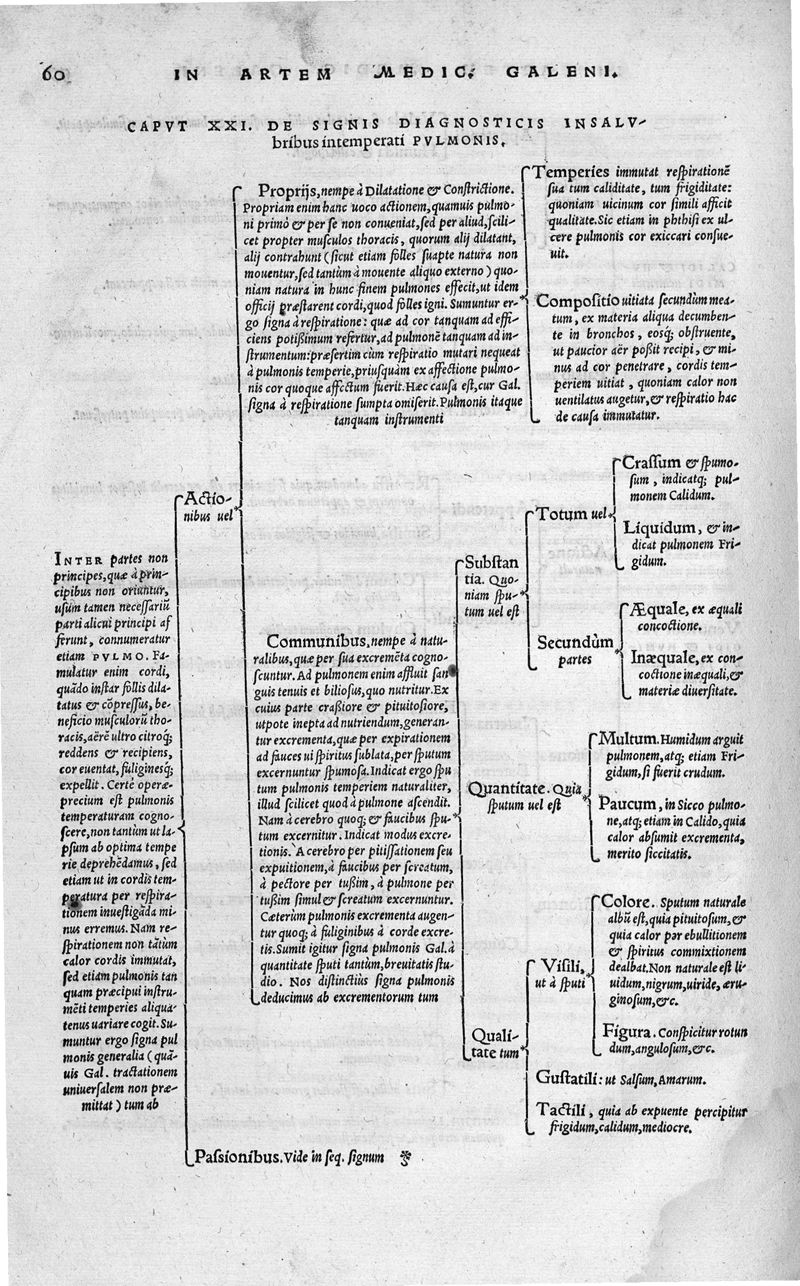 60 IN ARTEM MEDIC. GALENI.
CAPVT XXI. DE SIGNIS DIAGNOSTICIS INSALV-
bribus intemperati PVLMONIS.
INTER partes non
principes, quæ à prin-
cipibus non oriuntur,
usum tamen necessariũ
parti alicui principi af
ferunt, connumeratur
etiam PVLMO. Fa-
mulatur enim cordi,
quãdo instar follis dila-
tatus & cõpressus, be-
neficio musculorũ tho-
racis, aërẽ ultro citroq;
reddens & recipiens,
cor euentat, fuligínesq;
expellit. Certè operæ-
precium est pulmonis
temperaturam cogno-
scere, non tantùm ut la-
psum ab optima tempe
rie deprehẽdamus, sed
etiam ut in cordis tem-
peratura per respira-
tionem inuestigãda mi-
nus erremus. Nam re-
spirationem non tãtùm
calor cordis immutat,
sed etiam pulmonis tan
quam præcipui instru-
mẽti temperies aliqua-
tenus uariare cogit. Su-
muntur ergo signa pul
monis generalia (quã-
uis Gal. tractationem
uniuersalem non præ-
mittat) tum ab
Actio-
nibus uel
Proprijs, nempe à Dilatatione & Constrictione.
Propriam enim hanc uoco actionem, quamuis pulmo-
ni primò & per se non conueniat, sed per aliud, scili-
cet propter musculos thoracis, quorum alij dilatant,
alij contrahunt (sicut etiam folles suapte natura non
mouentur, sed tantùm à mouente aliquo externo) quo-
niam natura in hunc finem pulmones effecit, ut idem
officij præstarent cordi, quod folles igni. Sumuntur er-
go signa à respiratione: quæ ad cor tanquam ad effi-
ciens potißimum refertur, ad pulmonẽ tanquam ad in-
strumentum: præsertim cùm respiratio mutari nequeat
à pulmonis temperie, priusquàm ex affectione pulmo-
nis cor quoque affectum fuerit. Hæc causa est, cur Gal.
signa à respiratione sumpta omiserit. Pulmonis itaque
tanquam instrumenti
Temperies immutat respirationẽ
sua tum caliditate, tum frigiditate:
quoniam uicinum cor simili afficit
qualitate. Sic etiam in phthisi ex ul-
cere pulmonis cor exiccari consue-
uit.
Compositio uitiata secundùm mea-
tum, ex materia aliqua decumben-
te in bronchos, eosq; obstruente,
ut paucior aër poßit recipi, & mi-
nus ad cor penetrare, cordis tem-
periem uitiat, quoniam calor non
uentilatus augetur, & respiratio hac
de causa immutatur.
Communibus, nempe à natu-
ralibus, quæ per sua excremẽta cogno-
scuntur. Ad pulmonem enim affluit san
guis tenuis et biliosus, quo nutritur. Ex
cuius parte craßiore & pituitosiore,
utpote inepta ad nutriendum, generan-
tur excrementa, quæ per expirationem
ad fauces ui spiritus sublata, per sputum
excernuntur spumosa. Indicat ergo spu
tum pulmonis temperiem naturaliter,
illud scilicet quod à pulmone ascendit.
Nam à cerebro quoq; & faucibus spu-
tum excernitur. Indicat modus excre-
tionis. A cerebro per pitissationem seu
expuitionem, à faucibus per screatum,
à pectore per tußim, à pulmone per
tußim simul & screatum excernuntur.
Cæterùm pulmonis excrementa augen-
tur quoq; à fuliginibus à corde excre-
tis. Sumit igitur signa pulmonis Gal. à
quantitate sputi tantùm, breuitatis stu-
dio. Nos distinctius signa pulmonis
deducimus ab excrementorum tum
Substan
tia. Quo-
niam spu-
tum uel est
Totum uel
Crassum & spumo-
sum, indicatq; pul-
monem Calidum.
Liquidum, & in-
dicat pulmonem Fri-
gidum.
Secundùm
partes
Æquale, ex æquali
concoctione.
Inæquale, ex con-
coctione inæquali, &
materiæ diuersitate.
Quantitate. Quia
sputum uel est
Multum. Humidum arguit
pulmonem, atq; etiam Fri-
gidum, si fuerit crudum.
Paucum, in Sicco pulmo-
ne, atq; etiam in Calido, quia
calor absumit excrementa,
merito siccitatis.
Quali-
tate tum
Visili,
ut à sputi
Colore. Sputum naturale
albũ est, quia pituitosum, &
quia calor per ebullitionem
& spiritus commixtionem
dealbat. Non naturale est li-
uidum, nigrum, uiride, æru-
ginosum, &c.
Figura. Conspicitur rotun
dum, angulosum, &c.
Gustatili: ut Salsum, Amarum.
Tactili, quia ab expuente percipitur
frigidum, calidum, mediocre.
Passionibus. Vide in seq. signum